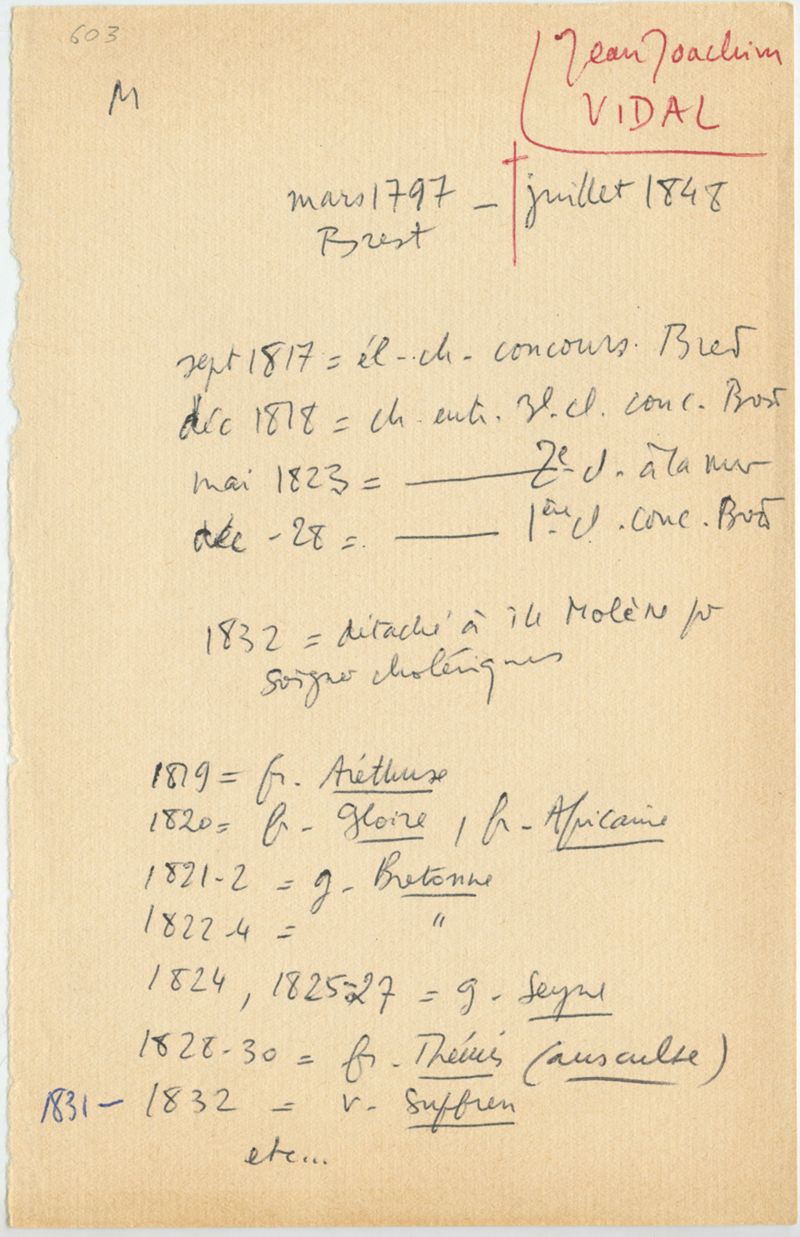 603
M
Jean Joachim
VIDAL
mars 1797 – † juillet 1848
Brest
sept 1817 = él - ch - concours. Brest
déc 1818 = ch. entr. 3e. cl. conc. Brest
mai 1823 = ——— 2e cl. à la mer
déc - 28 = ——— 1ère cl. conc. Brest
1832 = détaché à île Molène pr
soigner cholériques
1819 = fr. Aréthuse
1820 = fr - Gloire, fr - Africaine
1821-2 = g - Bretonne
1822-4 = "
1824, 1825-27 = g - Seyne
1828-30 = fr. Thémis (ausculte)
1831 – 1832 = v - Suffren
etc...